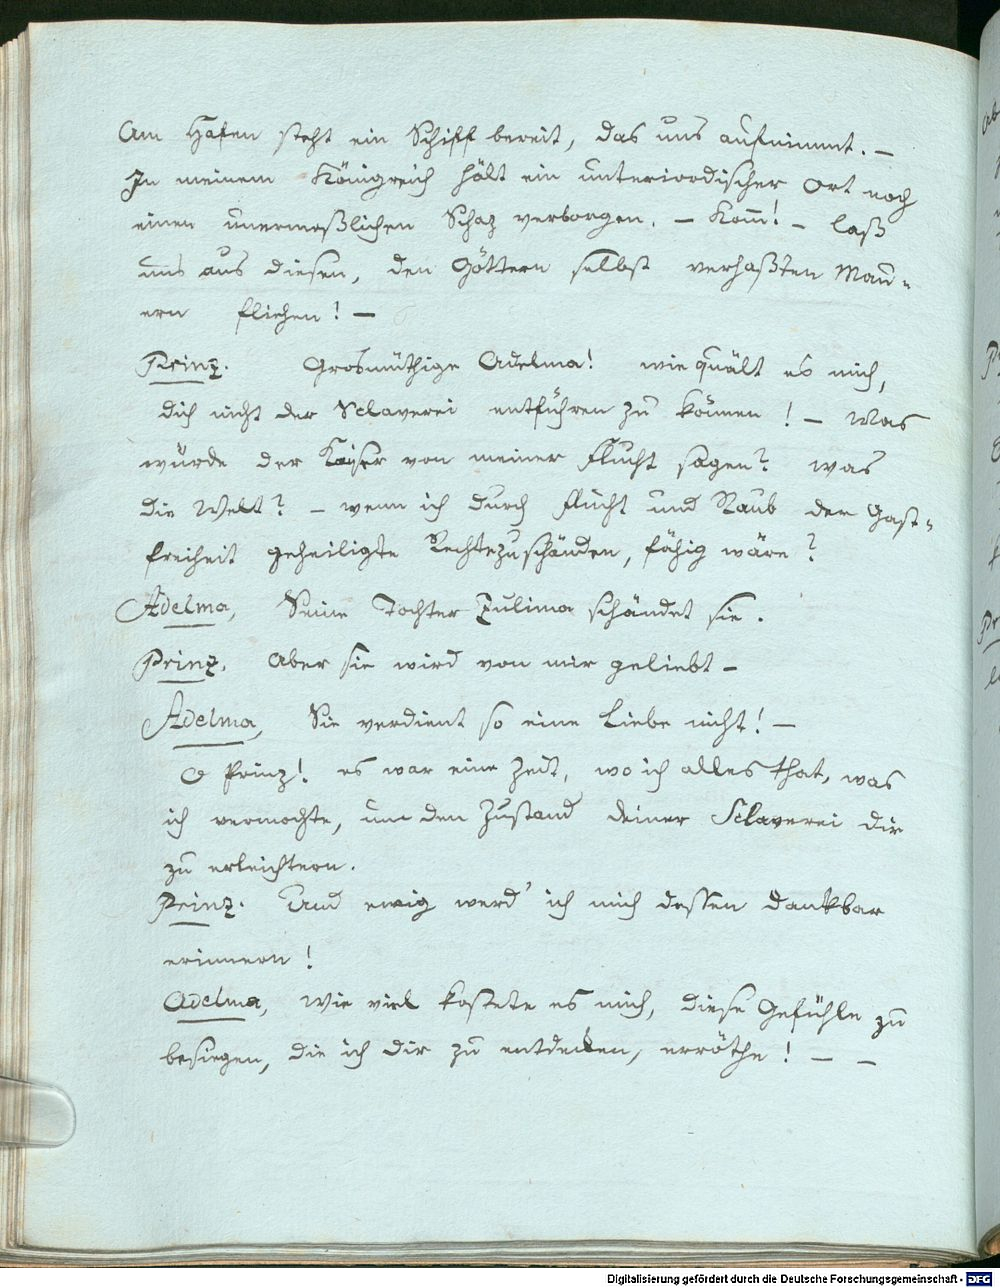 Am Hafen steht ein Schiff bereit, das uns aufnimmt. –
In meinem Königreich hält ein unterirrdischer Ort noch
einen unermeßlichen Schaz verborgen. – Kom̄! – laß
uns aus diesen, den Göttern selbst verhaßten Mau=
ern fliehen! –
Prinz. Grosmüthige Adelma! wie quält es mich,
dich nicht der Sclaverei entführen zu können! – Was
würde der Kaiser von meiner Flucht sagen? was
die Welt? – wenn ich durch Flucht und Raub der Gast=
freiheit geheiligte Rechte zu schänden, fähig wäre?
Adelma, Seine Tochter Zulima schändet sie.
Prinz. Aber sie wird von mir geliebt –
Adelma, Sie verdient so eine Liebe nicht! –
O Prinz! es war eine Zeit, wo ich alles that, was
ich vermochte, um den Zustand deiner Sclaverei dir
zu erleichtern.
Prinz. Und ewig werd' ich mich dessen dankbar
erinnern!
Adelma, Wie viel kostete es mich, diese Gefühle zu
besiegen, die ich dir zu entdecken, erröthe! – –
Digitalisierung gefördert durch die Deutsche Forschungsgemeinschaft - DFG